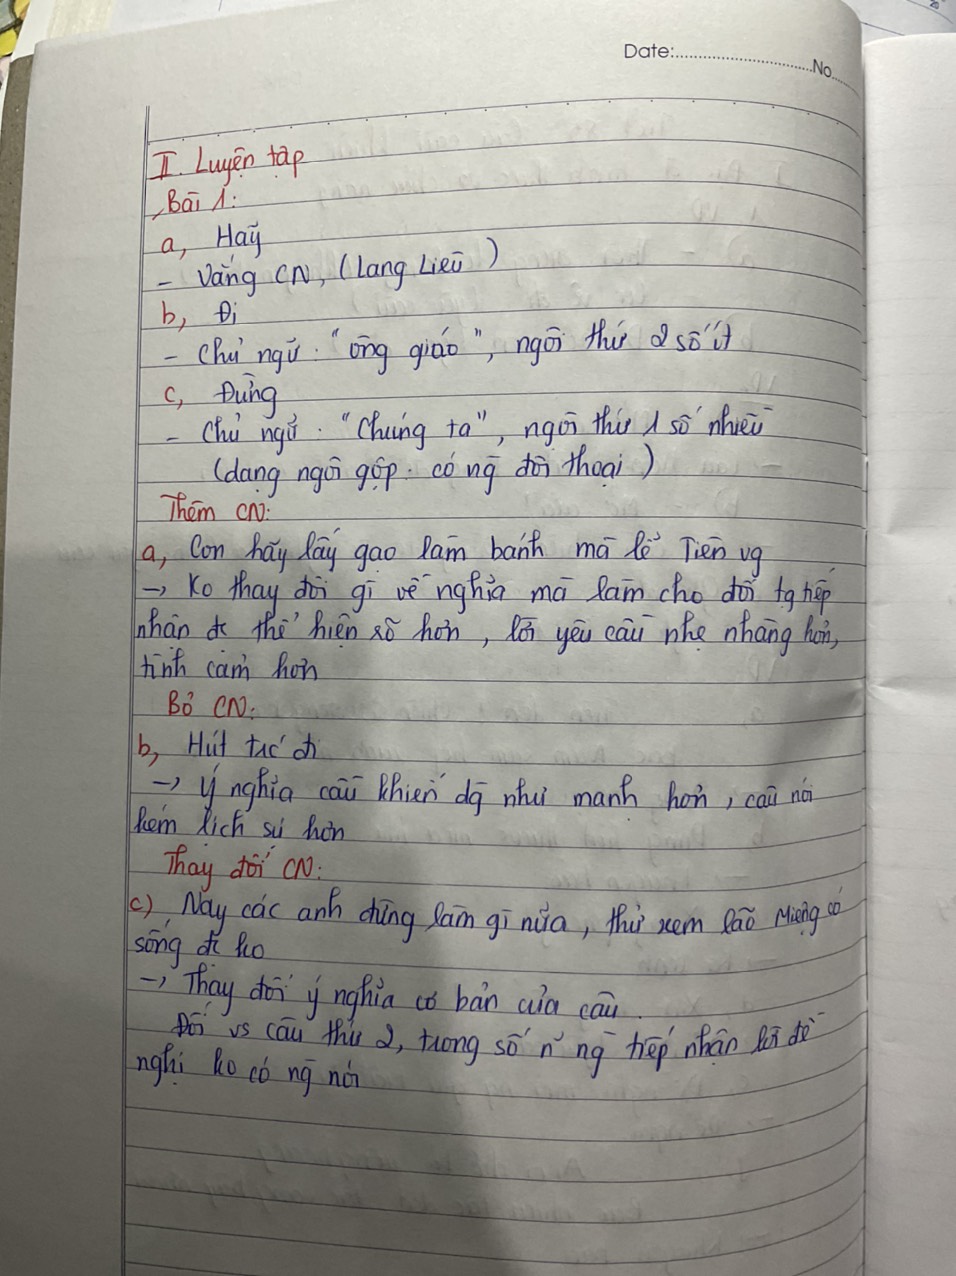 Date:..............................No.....
II. Luyện tập
Bài 1:
a, Hãy
- Vắng CN, (Lang Liêu)
b, Đi
- Chủ ngữ: "ông giáo", ngôi thứ 2 số ít
c, Đừng
- Chủ ngữ: "Chúng ta", ngôi thứ 1 số nhiều
(dạng ngôi gộp: có ng đối thoại)
Thêm CN:
a, Con hãy lấy gạo làm bánh mà lễ Tiên vg
-> Ko thay đổi gì về nghĩa mà làm cho đối tg tiếp
nhận đc thể hiện rõ hơn, lời yêu cầu nhẹ nhàng hơn,
tình cảm hơn
Bỏ CN:
b, Hút trc đi
-> ý nghĩa câu khiến dg như mạnh hơn, câu nói
kém lịch sự hơn
Thay đổi CN:
c) Nay các anh đừng làm gì nữa, thử xem lão Miệng có
sống đc ko
-> Thay đổi ý nghĩa cơ bản của câu.
Đối vs câu thứ 2, trong số n~ ng tiếp nhận lời đề
nghị ko có ng nói